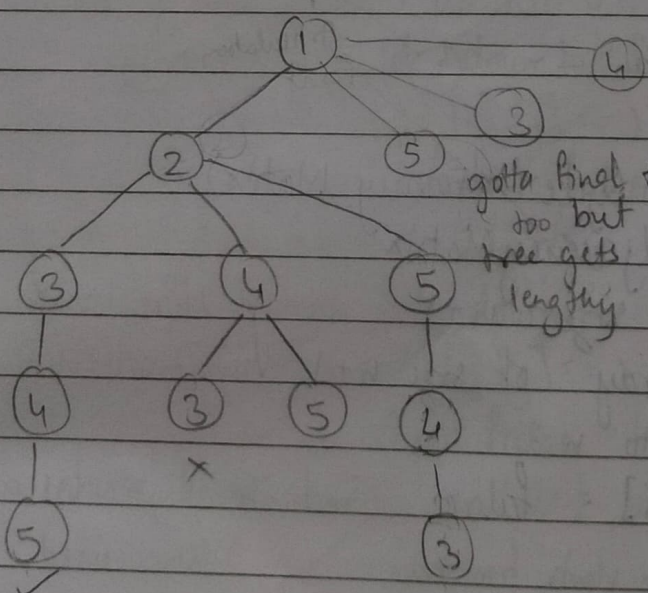 1
4
3
2
5
gotta final
too but
tree gets
lengthy
3
4
5
4
3
5
4
x
5
3